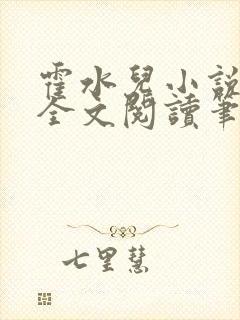 霍水兒小說
全文閱讀筆
七里慧